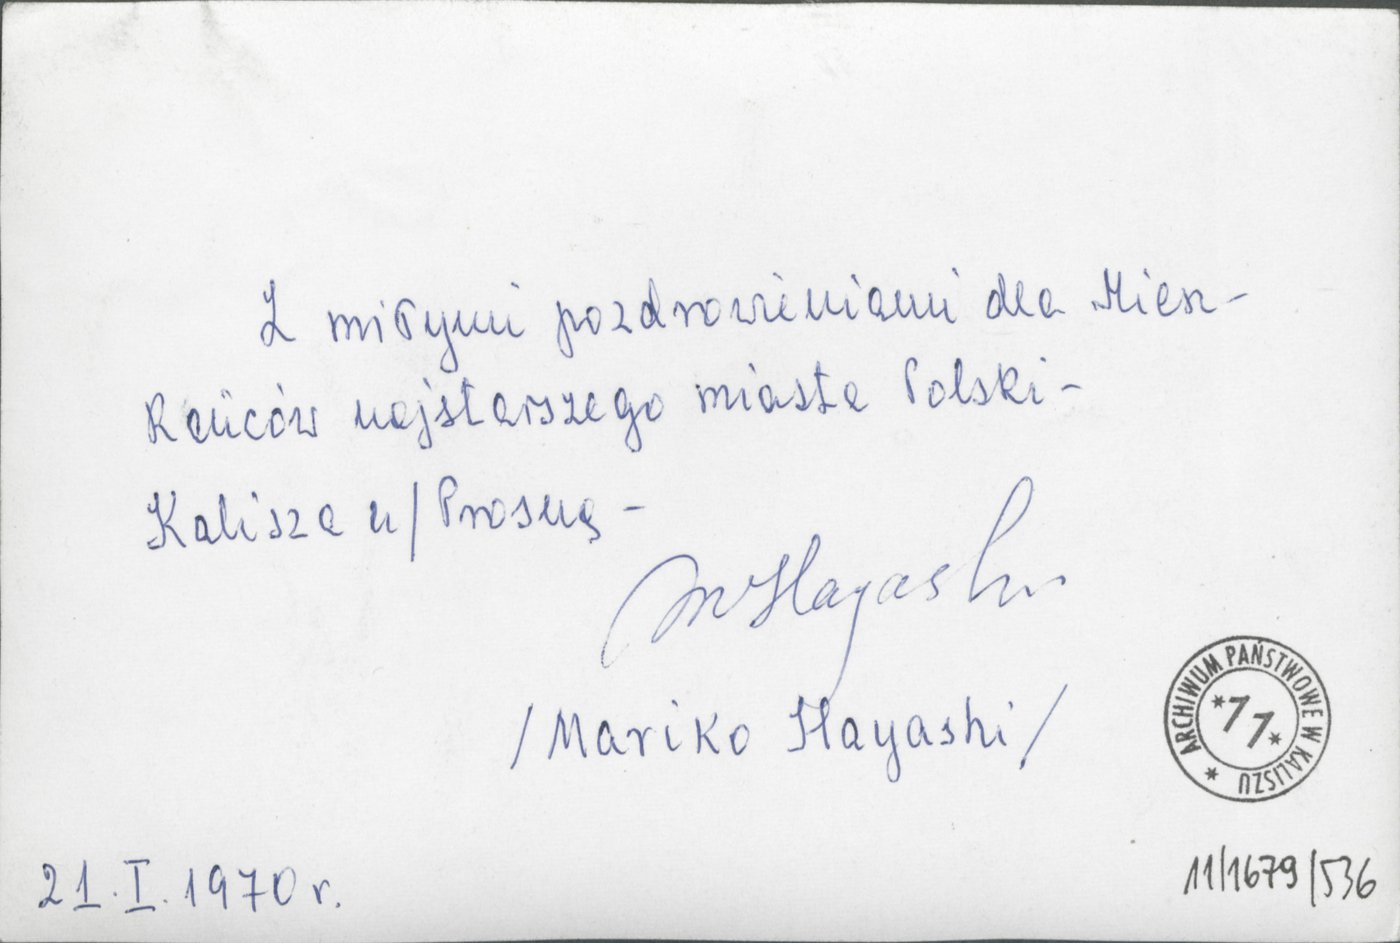 Z miłymi pozdrowieniami dla Miesz-
kańców najstarszego miasta Polski-
Kalisza n/Prosną -
M Hayashi
/Mariko Hayashi/
ARCHIWUM PAŃSTWOWE W KALISZU
*11*
21.I.1970 r.
11/1679/536